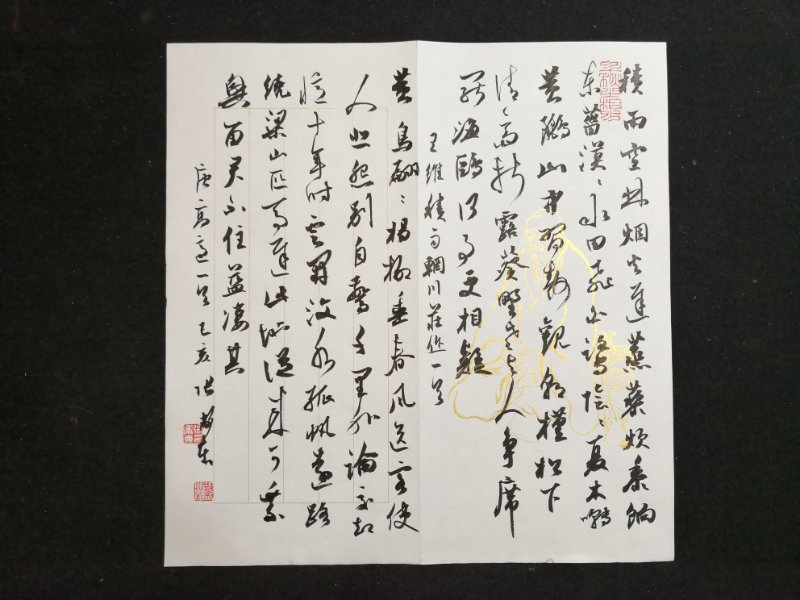 積雨空林烟火遲蒸藜炊黍餉
東菑漠〻水田飛白鷺陰〻夏木囀
黃鸝山中習靜觀朝槿松下
清齋折露葵野老與人爭席
罷海鷗何事更相疑
王維積雨輞川莊作一首
黃鳥翩〻楊柳垂春風送客使
人悲怨別自驚千里外論交却
憶十年時雲開汶水孤帆遠路
繞梁山匹馬遲此地從來可乘
興留君不住益淒其
唐高適一首 己亥 張東